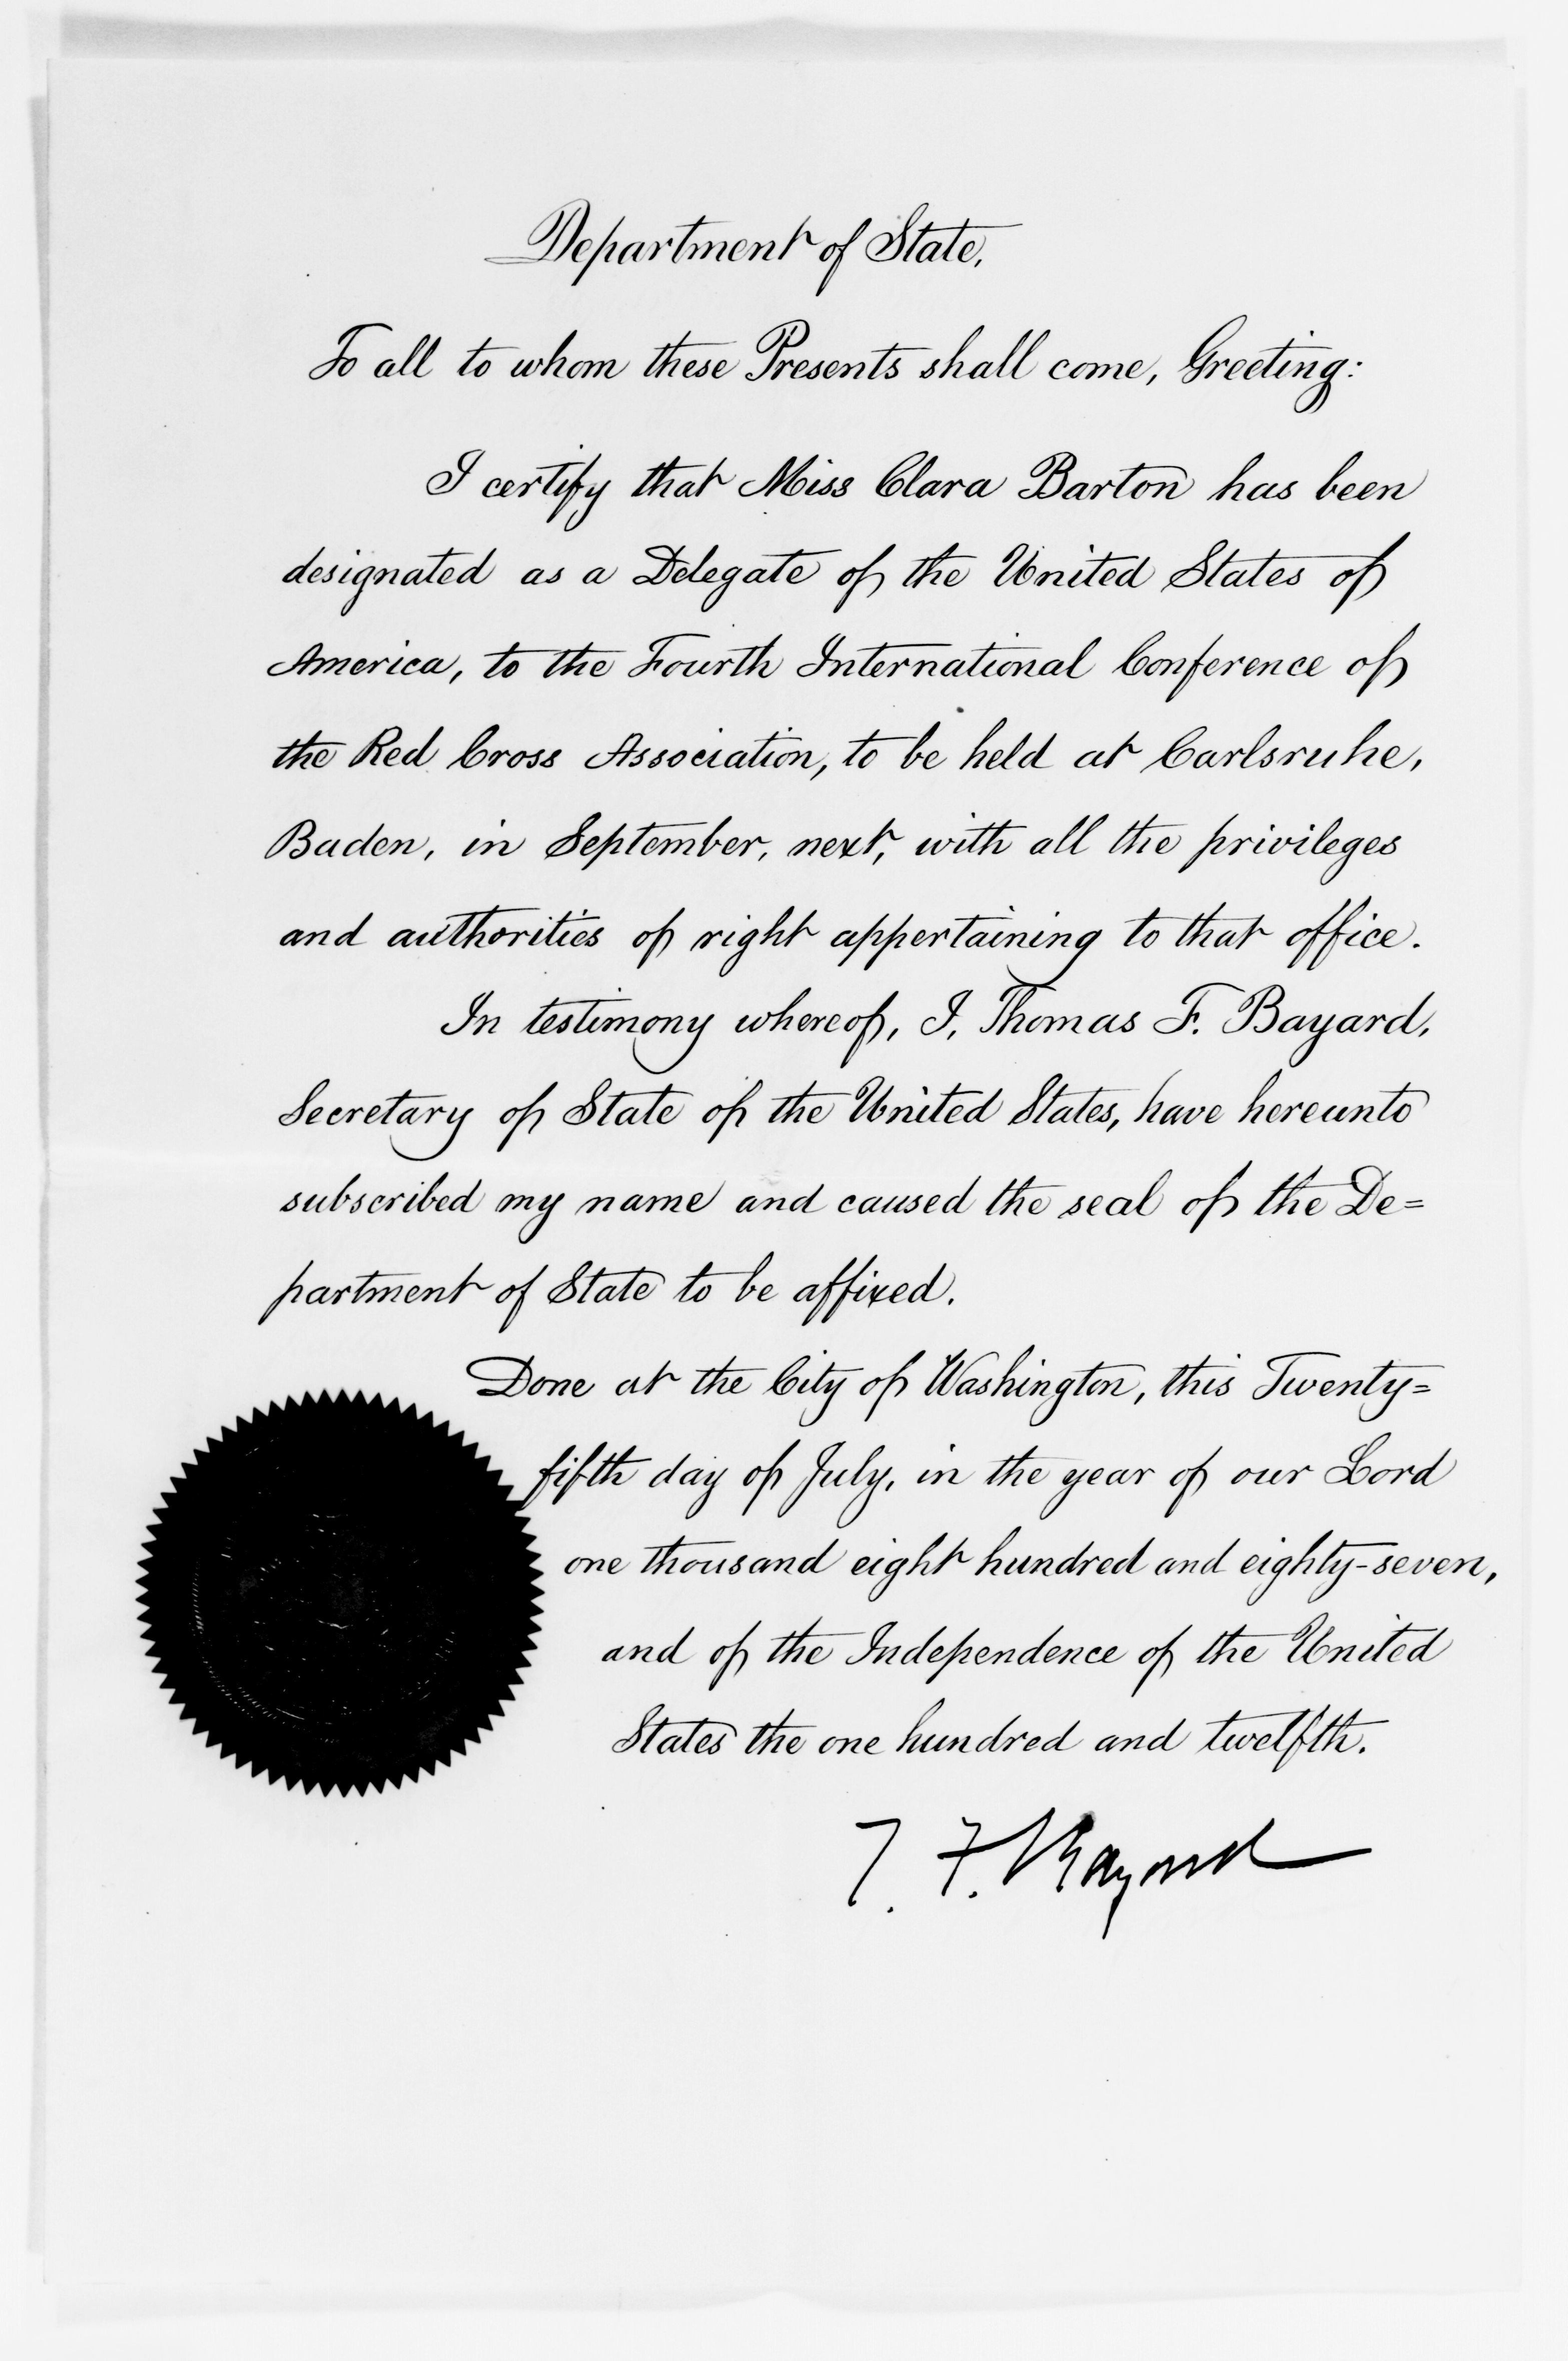 Department of State.
To all to whom these Presents shall come, Greeting:
I certify that Miss Clara Barton has been
designated as a Delegate of the United States of
America, to the Fourth International Conference of
the Red Cross Association, to be held at Carlsruhe,
Baden, in September, next, with all the privileges
and authorities of right appertaining to that office.
In testimony whereof, I, Thomas F. Bayard,
Secretary of State of the United States, have hereunto
subscribed my name and caused the seal of the De=
partment of State to be affixed.
Done at the City of Washington, this Twenty=
fifth day of July, in the year of our Lord
one thousand eight hundred and eighty-seven,
and of the Independence of the United
States the one hundred and twelfth.
T. F. Bayard